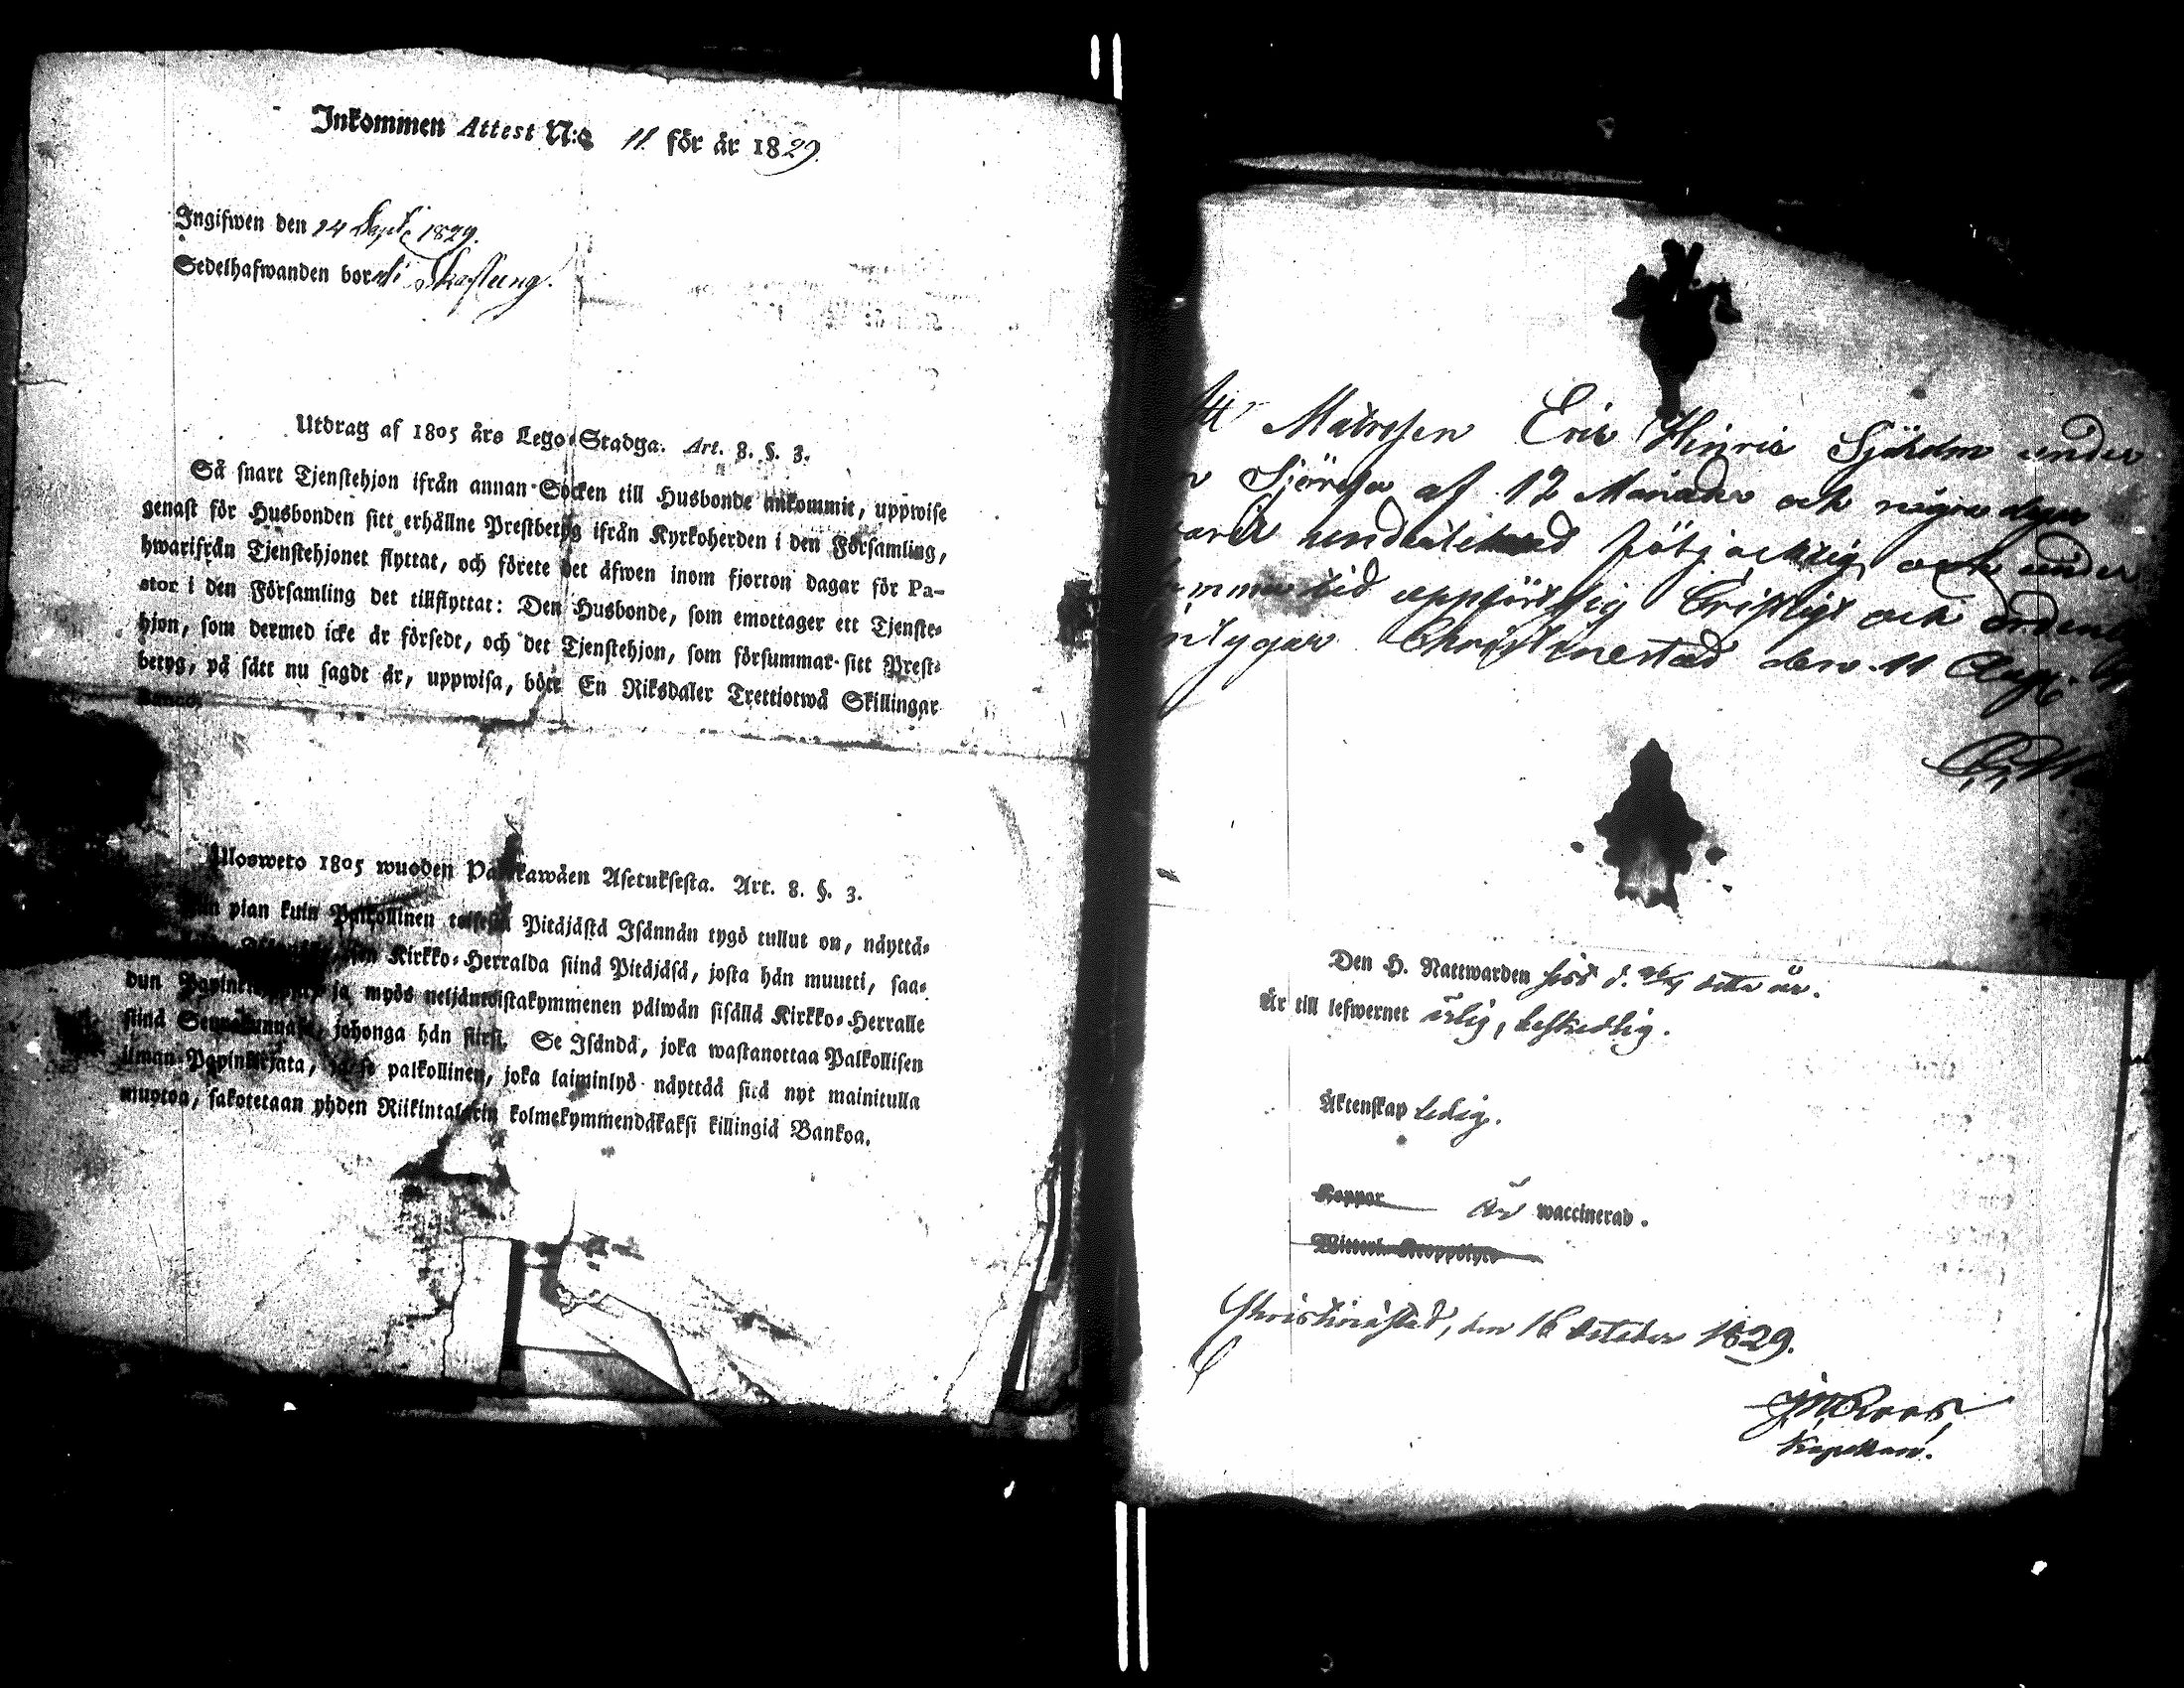 Inkommen Attest N:o 11. för år 1829.
Ingifwen den 24 Sept. 1829.
Sedelhafwanden bor i Skaftung.
Utdrag af 1805 års Lego-Stadga. Art. 8. §. 3.
Så snart Tjenstehjon ifrån annan Socken till Husbonde ankommit, uppwise
genast för Husbonden sitt erhållne Prestbetyg ifrån Kyrkoherden i den Församling,
hwarifrån Tjenstehjonet flyttat, och förete det äfwen inom fjorton dagar för Pa-
stor i den Församling det tillflyttat: Den Husbonde, som emottager ett Tjenste-
hjon, som dermed icke är försedt, och det Tjenstehjon, som försummar sitt Prest-
betyg, på sätt nu sagdt är, uppwisa, böte En Riksdaler Trettiotwå Skillingar
Banco.
Ulosweto 1805 wuoden Palkkawäen Asetuksesta. Art. 8. §. 3.
pian kuin Palkollinen toisesta Pitäjästä Isännän tygö tullut on, näyttä-
Kirkko-Herralda siinä Pitäjäsä, josta hän muutti, saa-
dun ja myös neljäntoistakymmenen päiwän sisällä Kirkko-Herralle
siinä Seurakunnasa, johonga hän siirsi. Se Isändä, joka wastanottaa Palkollisen
ilman Papinkirjata, ja se palkollinen, joka laiminlyö näyttää sitä nyt mainitulla
muotoa, sakotetaan yhden Riikintalarin kolmekymmendäkaksi killingiä Bankoa.
Att Matrosen Eric Hinric Sjöholm under
Sjöresa af 12 Månader och några dagar
och under
tid uppfört sig Cristligt och
intygar Christinestad den 11 Aug.
Den H. Nattwarden sist d. 26/4 detta år.
Är till lefwernet ärlig, beskedlig.
Äktenskap ledig.
Koppor är waccinerad.
Christinæstad, den 16 October 1829.
Kapellan.